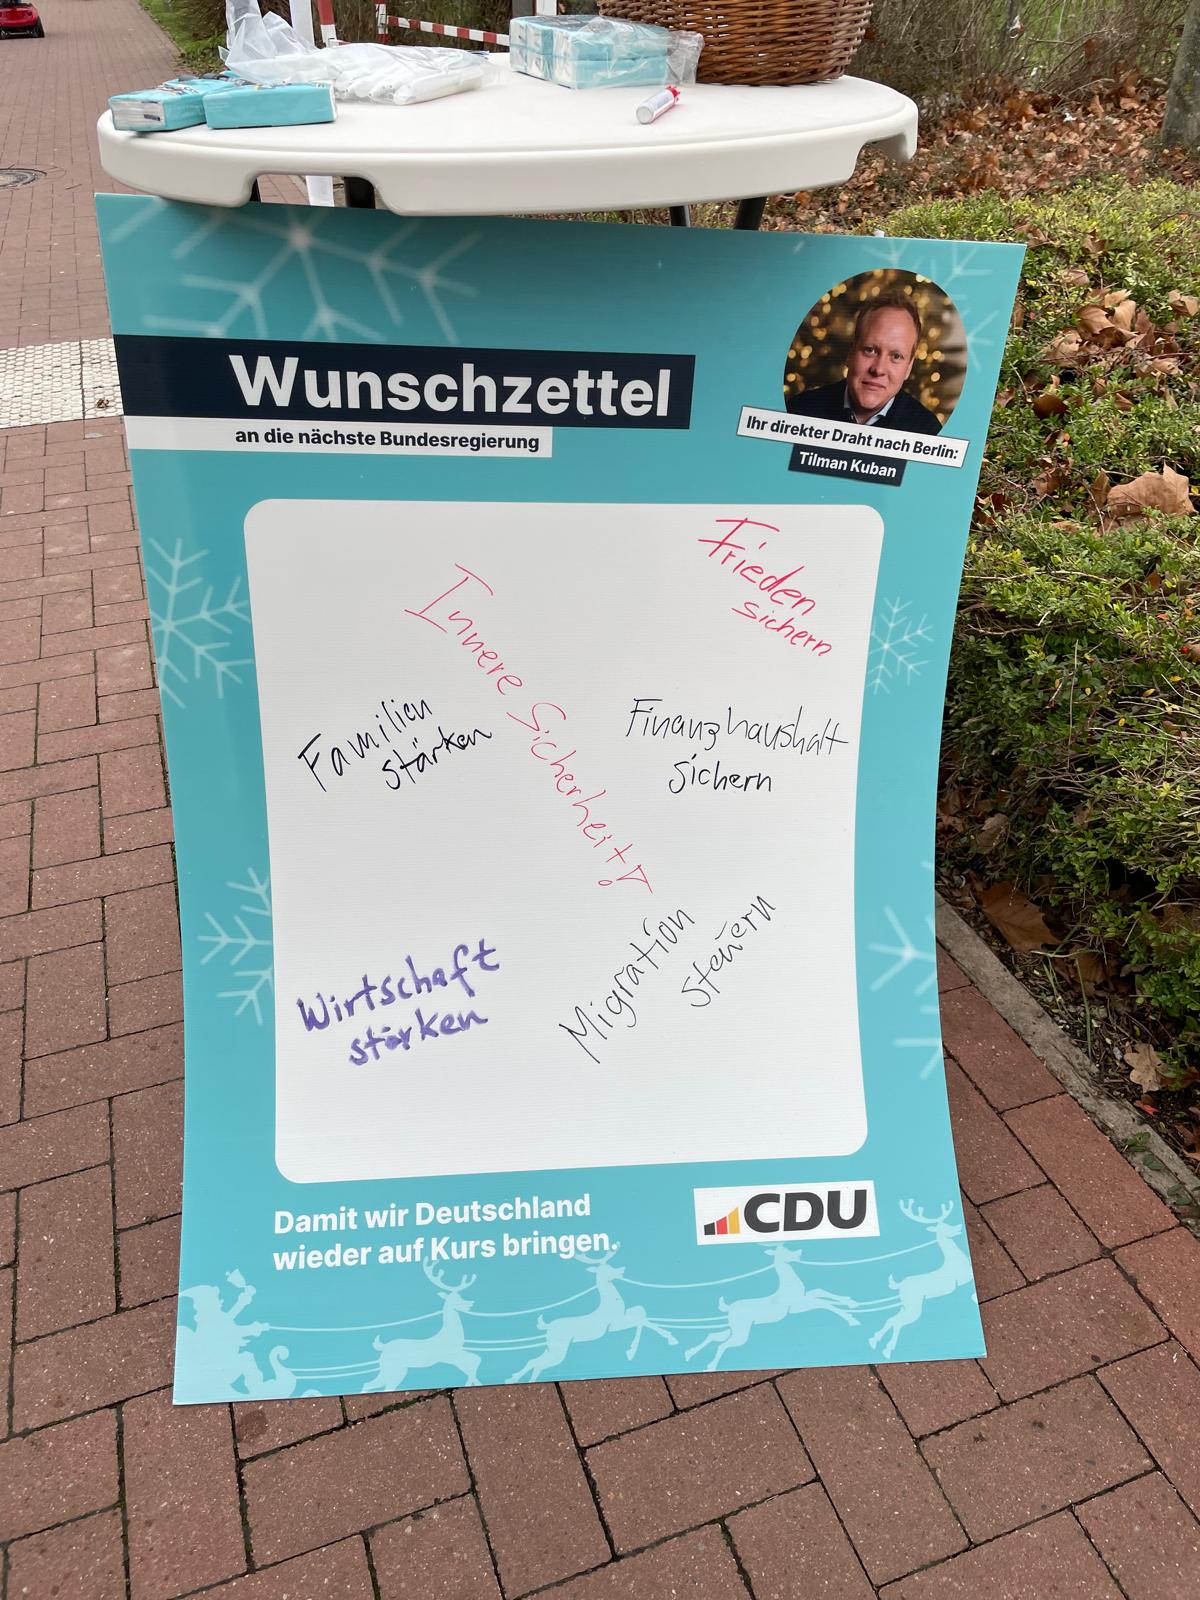 Wunschzettel
an die nächste Bundesregierung
Ihr direkter Draht nach Berlin:
Tilman Kuban
Frieden
sichern
Innere Sicherheit!
Familien
stärken
Finanzhaushalt
sichern
Wirtschaft
stärken
Migration
steuern
Damit wir Deutschland
wieder auf Kurs bringen.
CDU